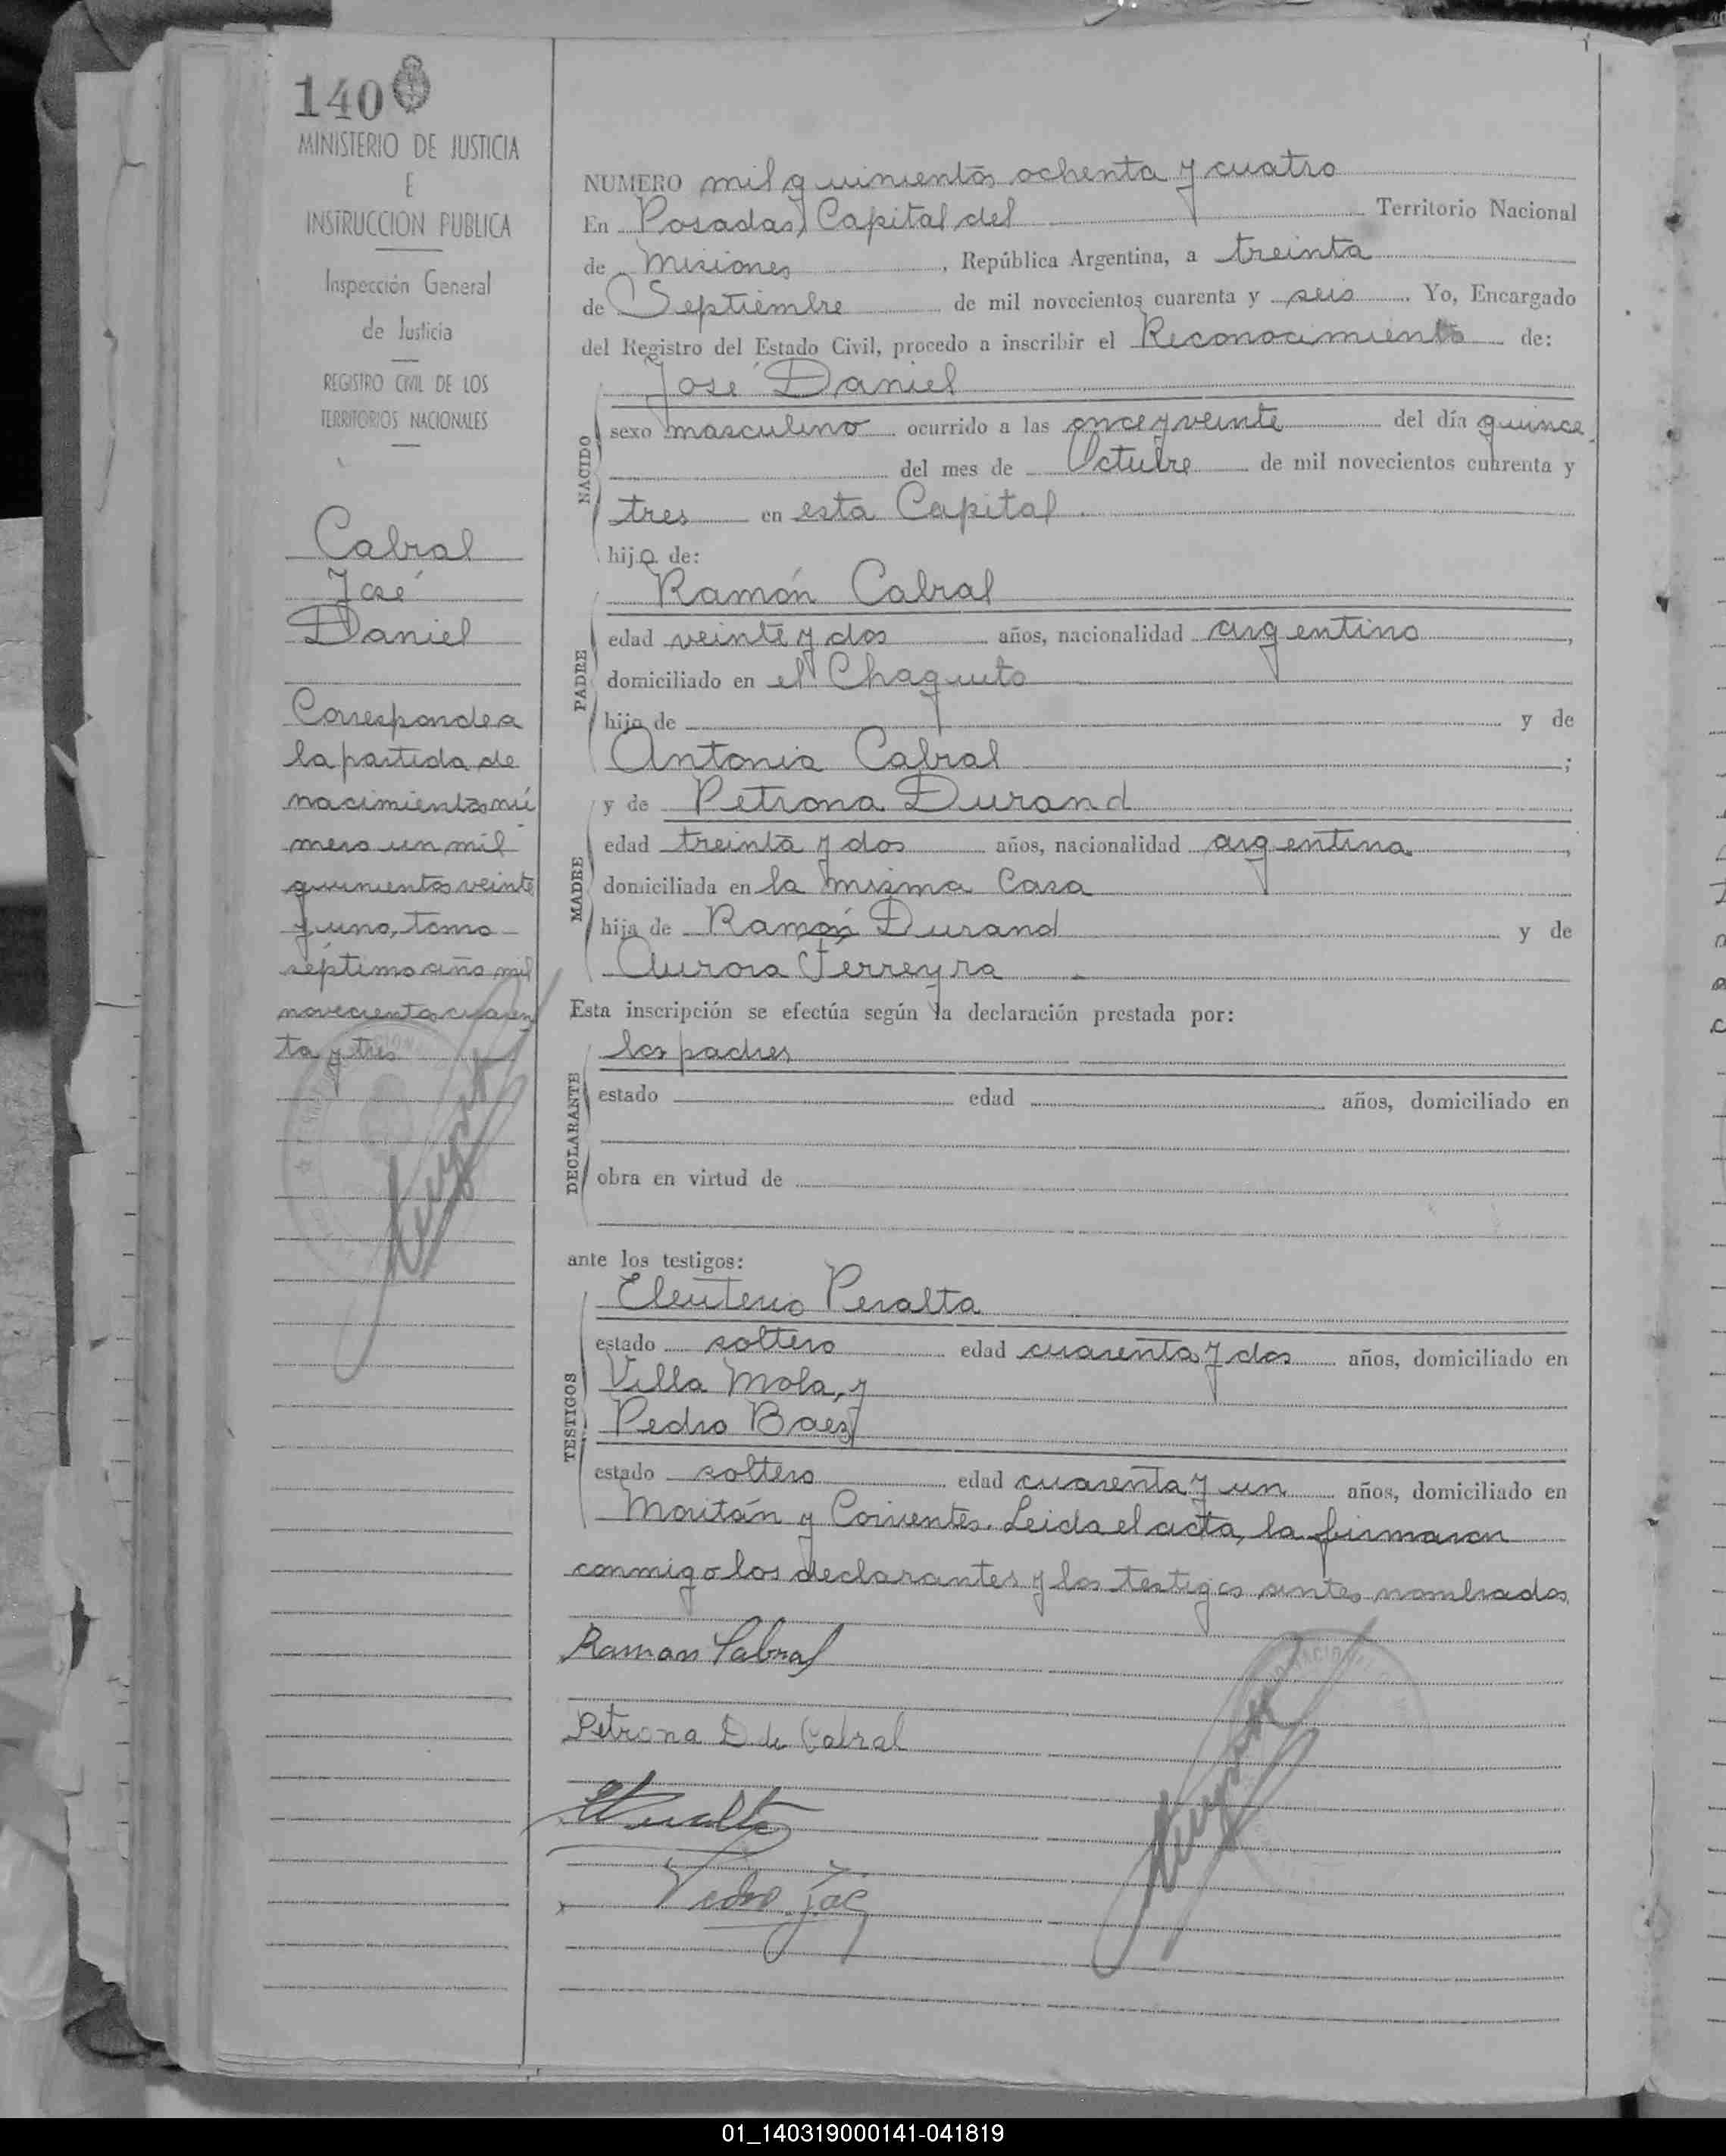 140
MINISTERIO DE JUSTICIA
E
INSTRUCCION PUBLICA
Inspección General
de Justicia
REGISTRO CIVIL DE LOS
TERRITORIOS NACIONALES
Cabral
José
Daniel
Corresponde a
la partida de
nacimiento nú
mero un mil
quinientos veinte
y uno, tomo
séptimo año mil
novecientos cuaren
ta y tres
NUMERO mil quinientos ochenta y cuatro
En Posadas, Capital del Territorio Nacional
de Misiones, República Argentina, a treinta
de Septiembre de mil novecientos cuarenta y seis. Yo, Encargado
del Registro del Estado Civil, procedo a inscribir el Reconocimiento de:
José Daniel
NACIDO
sexo masculino ocurrido a las once y veinte del día quince
del mes de Octubre de mil novecientos cuarenta y
tres en esta Capital.
hijo de:
Ramón Cabral
PADRE
edad veinte y dos años, nacionalidad argentino,
domiciliado en el Chaquito
hijo de y de
Antonia Cabral;
MADRE
y de Petrona Durand
edad treinta y dos años, nacionalidad argentina,
domiciliada en la misma casa
hija de Ramón Durand y de
Aurora Ferreyra
Esta inscripción se efectúa según la declaración prestada por:
los padres
DECLARANTE
estado edad años, domiciliado en
obra en virtud de
ante los testigos:
Eleuterio Peralta
TESTIGOS
estado soltero edad cuarenta y dos años, domiciliado en
Villa Mola, y
Pedro Baez
estado soltero edad cuarenta y un años, domiciliado en
Moritán y Corrientes. Leida el acta, la firmaron
conmigo los declarantes y los testigos antes nombrados
Ramon Cabral
Petrona D. de Cabral
01_140319000141-041819